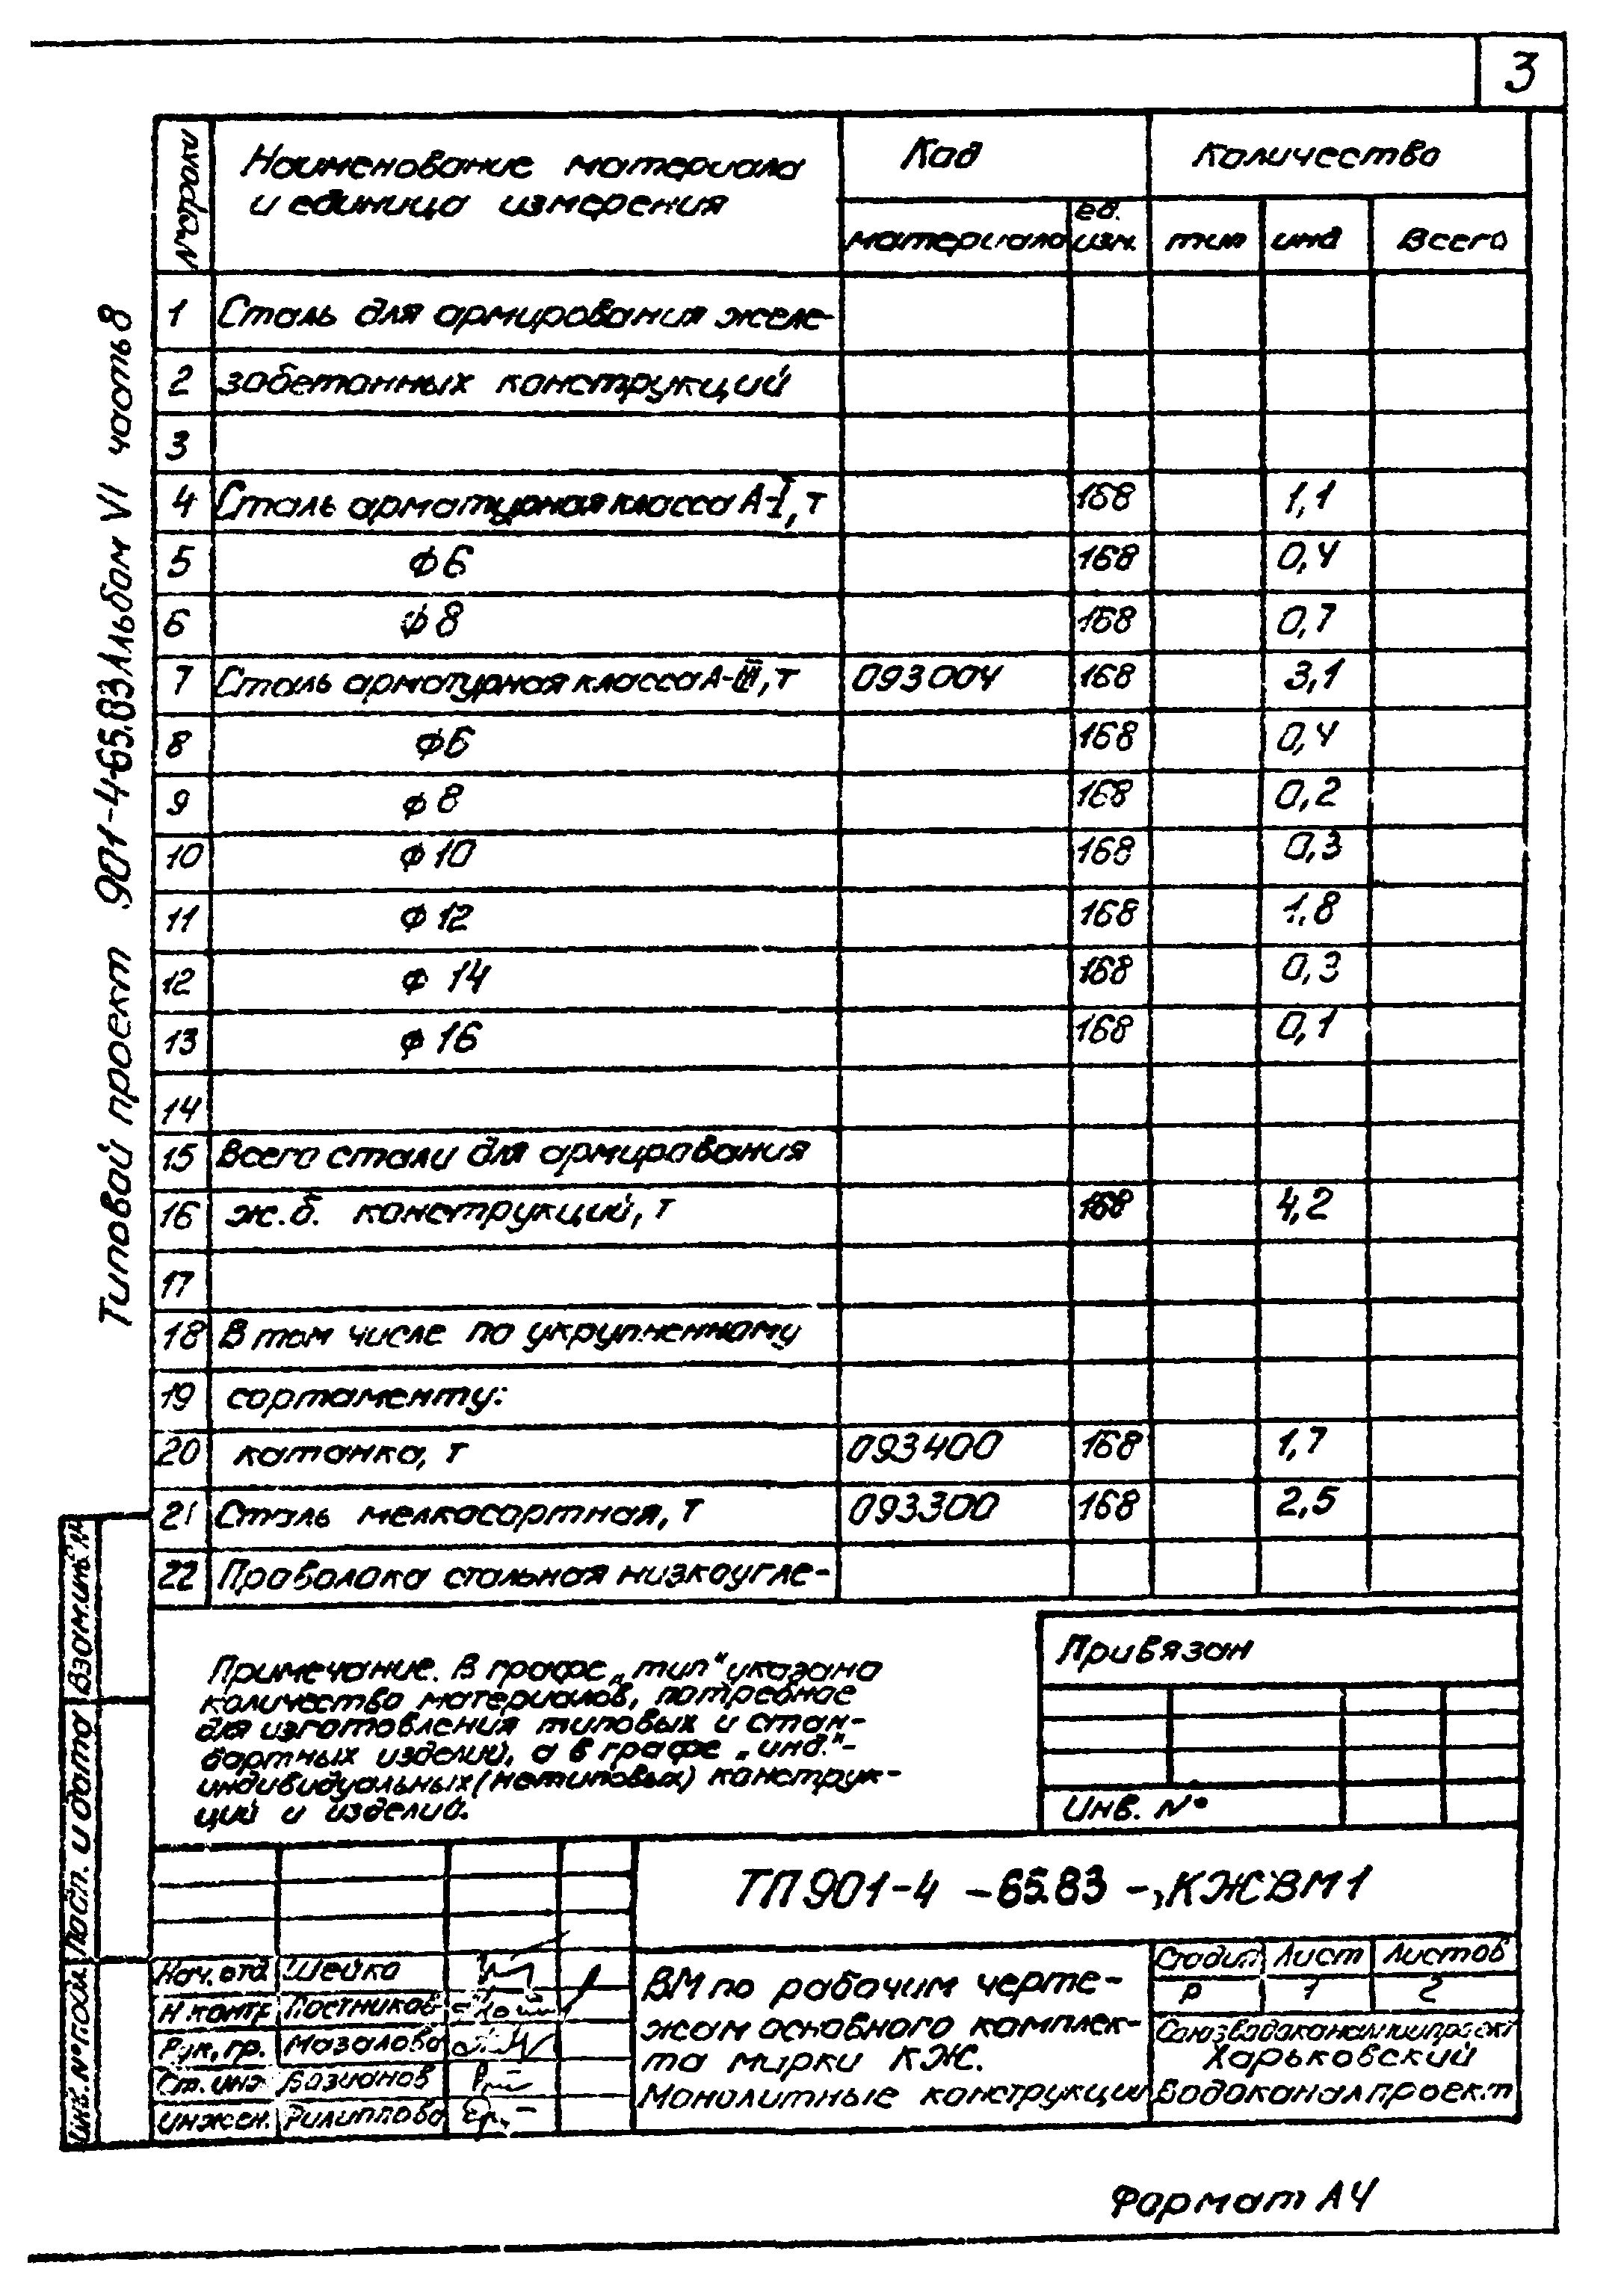 3
№ строки
Наименование материала
и единица измерения
Код
Количество
материала
ед.
изм.
тип
инд
Всего
1 Сталь для армирования желе-
2 зобетонных конструкций
3
4 Сталь арматурная класса А-I, т 168 1,1
5 ϕ6 168 0,4
6 ϕ8 168 0,7
7 Сталь арматурная класса А-III, т 093004 168 3,1
8 ϕ6 168 0,4
9 ϕ8 168 0,2
10 ϕ10 168 0,3
11 ϕ12 168 1,8
12 ϕ 14 168 0,3
13 ϕ16 168 0,1
14
15 Всего стали для армирования
16 ж.б. конструкций, т 168 4,2
17
18 В том числе по укрупненному
19 сортаменту:
20 катанка, т 093400 168 1,7
21 Сталь мелкосортная, т 093300 168 2,5
22 Проволока стальная низкоугле-
Типовой проект 901-4-65.83 Альбом VI часть 8
Примечание. В графе „тип“ указано
количество материалов, потребное
для изготовления типовых и стан-
дартных изделий, а в графе „инд.“-
индивидуальных (нетиповых) конструк-
ций и изделий.
Привязан
Инв. №
Взам. инв. №
Подп. и дата
Инв. № подл.
ТП 901-4 -65.83 -,КЖВМ1
Нач. отд Шейко
Н.контр Постников
Рук. гр. Мазалова
Ст. инж Базианов
Инжен. Филиппова
ВМ по рабочим черте-
жам основного комплек-
та марки КЖ.
Монолитные конструкции
Стадия Лист Листов
Р 1 2
Союзводоканалниипроект
Харьковский
Водоканалпроект
Формат А4